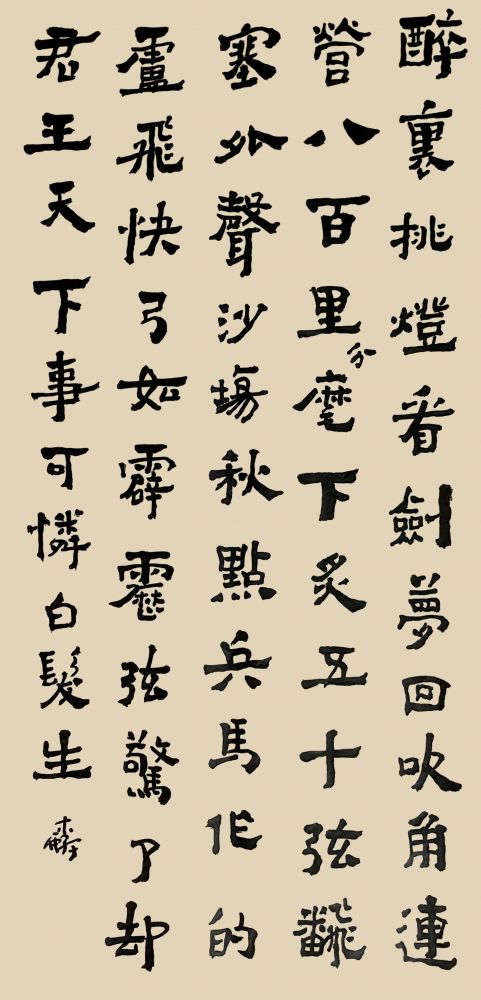 醉裏挑燈看劍夢回吹角連
營八百里分麾下炙五十弦飜
塞外聲沙場秋點兵馬作的
盧飛快弓如霹靂弦驚了却
君王天下事可憐白髮生